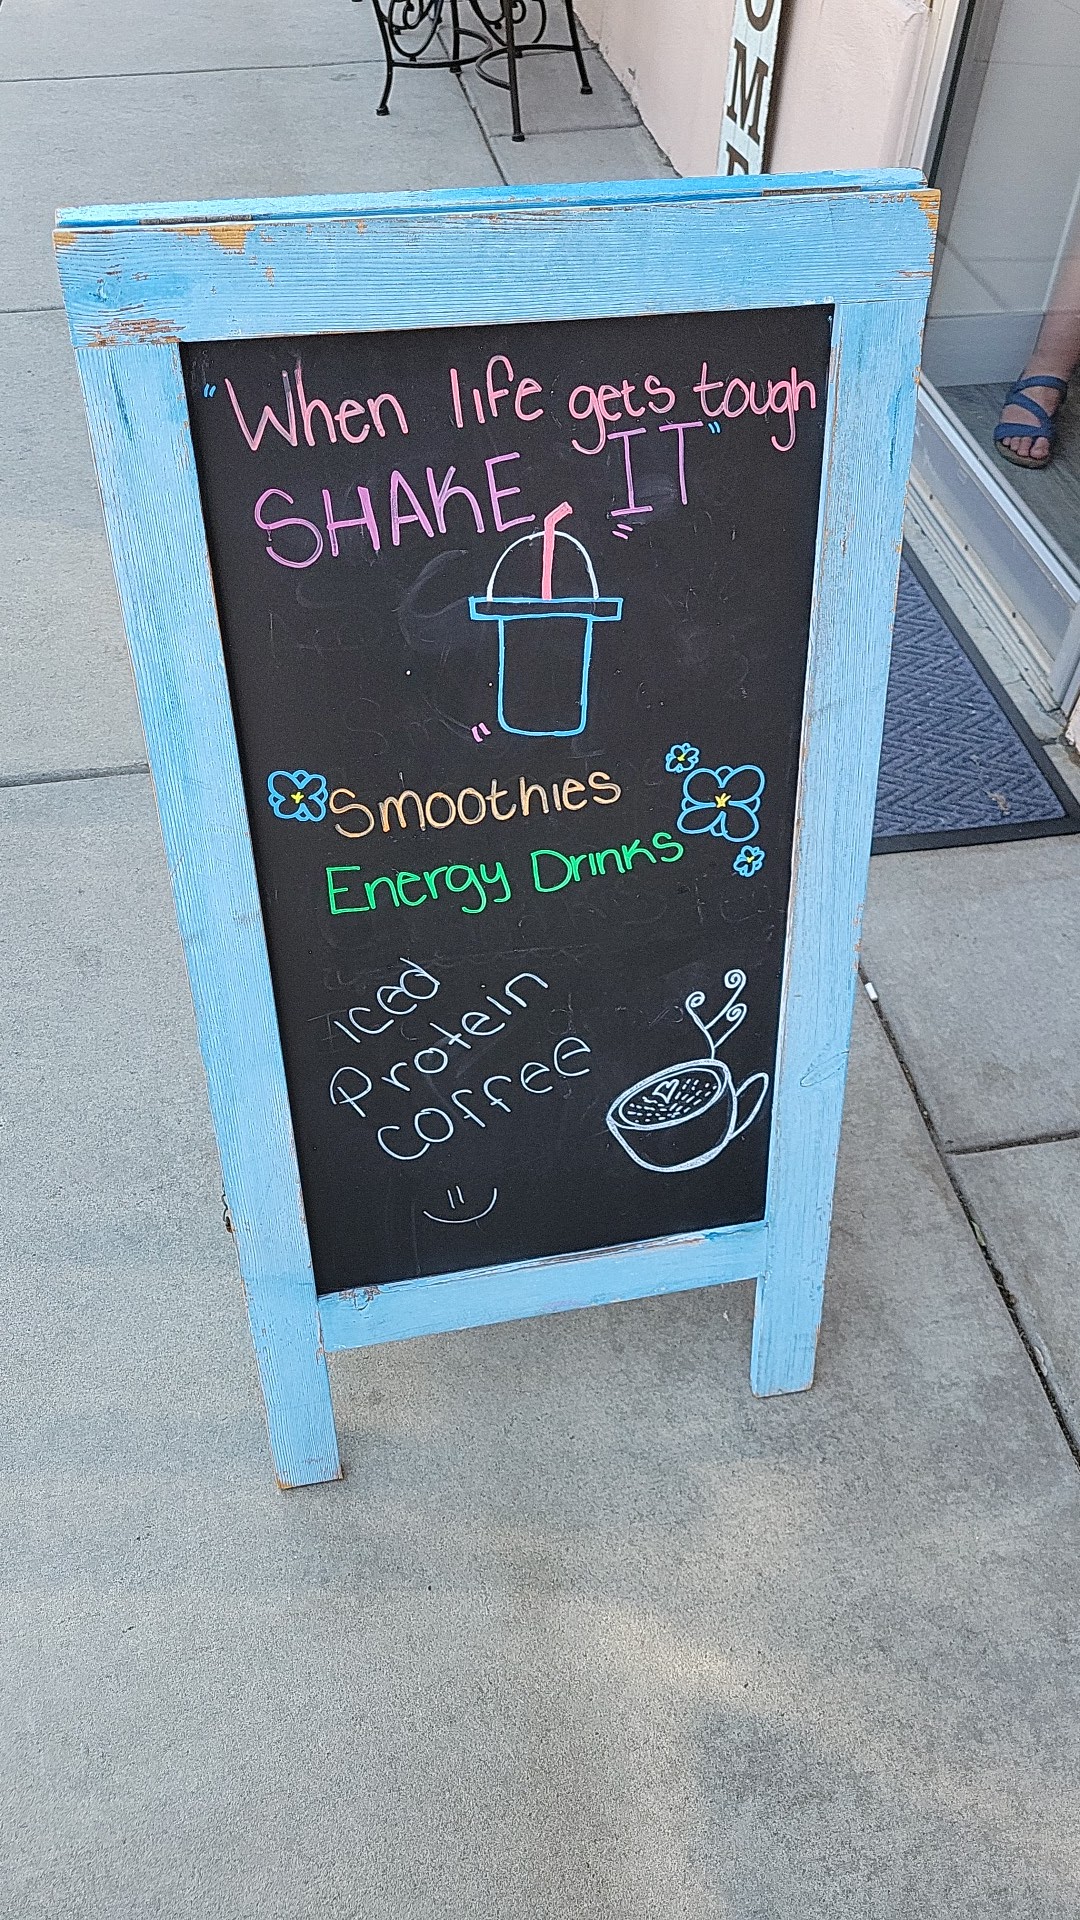 "When life gets tough
SHAKE IT"
Smoothies
Energy Drinks
Iced
Protein
coffee
OME